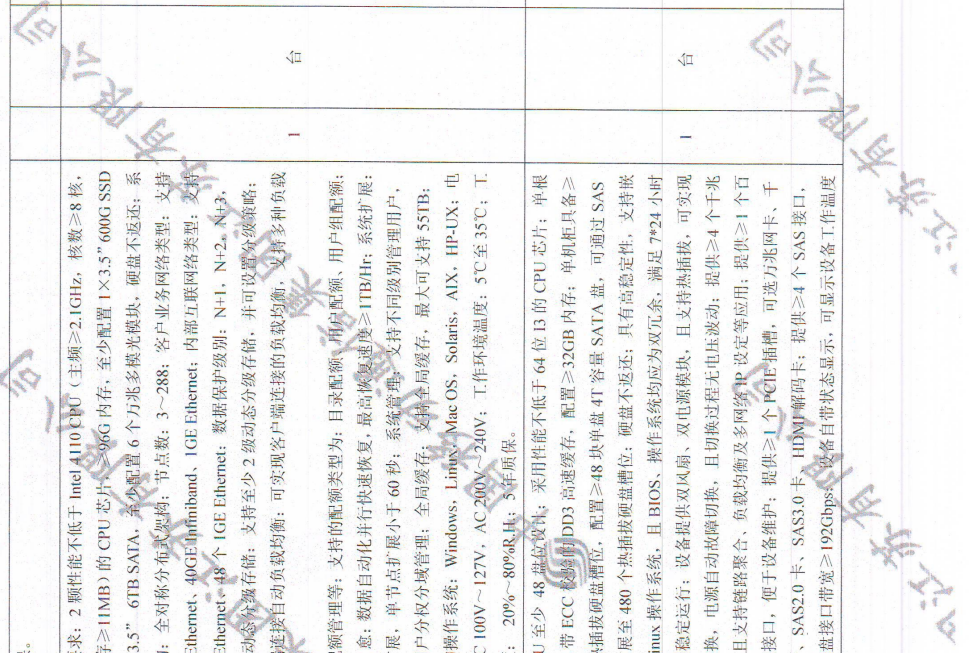 求：2 颗性能不低于 Intel 4110 CPU（主频≥2.1GHz，核数≥8 核，
字≥11MB）的 CPU 芯片、≥96G 内存，至少配置 1×3.5” 600G SSD
3.5” 6TB SATA，至少配置 6 个万兆多模光模块，硬盘不返还；系
：全对称分布式架构；节点数：3～288；客户业务网络类型：支持
Ethernet、40GE Infiniband、1GE Ethernet；内部互联网络类型：支持
Ethernet、48 个 1GE Ethernet；数据保护级别：N+1，N+2，N+3，
动态分级存储：支持至少 2 级动态分级存储，并可设置分级策略；
连接自动负载均衡：可实现客户端连接的负载均衡，支持多种负载
额管理等；支持的配额类型为：目录配额、用户配额、用户组配额；
意：数据自动化并行快速恢复，最高恢复速度≥1TB/Hr；系统扩展：
展，单节点扩展小于 60 秒；系统管理：支持不同级别管理用户，
户分权分域管理；全局缓存：支持全局缓存，最大可支持 55TB；
操作系统：Windows，Linux，Mac OS，Solaris，AIX，HP-UX；电
C 100V～127V，AC 200V～240V；工作环境温度：5℃至 35℃；工
：20%~80%R.H；5 年质保。
1
台
U 至少 48 盘位设计；采用性能不低于 64 位 I3 的 CPU 芯片；单根
带 ECC 校验的 DD3 高速缓存，配置≥32GB 内存；单机柜具备≥
热插拔硬盘槽位，配置≥48 块单盘 4T 容量 SATA 盘，可通过 SAS
展至 480 个热插拔硬盘槽位；硬盘不返还；具有高稳定性，支持嵌
inux 操作系统，且 BIOS、操作系统均应为双冗余，满足 7*24 小时
稳定运行；设备提供双风扇、双电源模块，且支持热插拔，可实现
换，电源自动故障切换，且切换过程无电压波动；提供≥4 个千兆
且支持链路聚合、负载均衡及多网络 IP 设定等应用；提供≥1 个百
接口，便于设备维护；提供≥1 个 PCIE 插槽，可选万兆网卡、千
、SAS2.0 卡、SAS3.0 卡、HDMI 解码卡；提供≥4 个 SAS 接口，
盘接口带宽≥192Gbps；设备自带状态显示，可显示设备工作温度
1
台